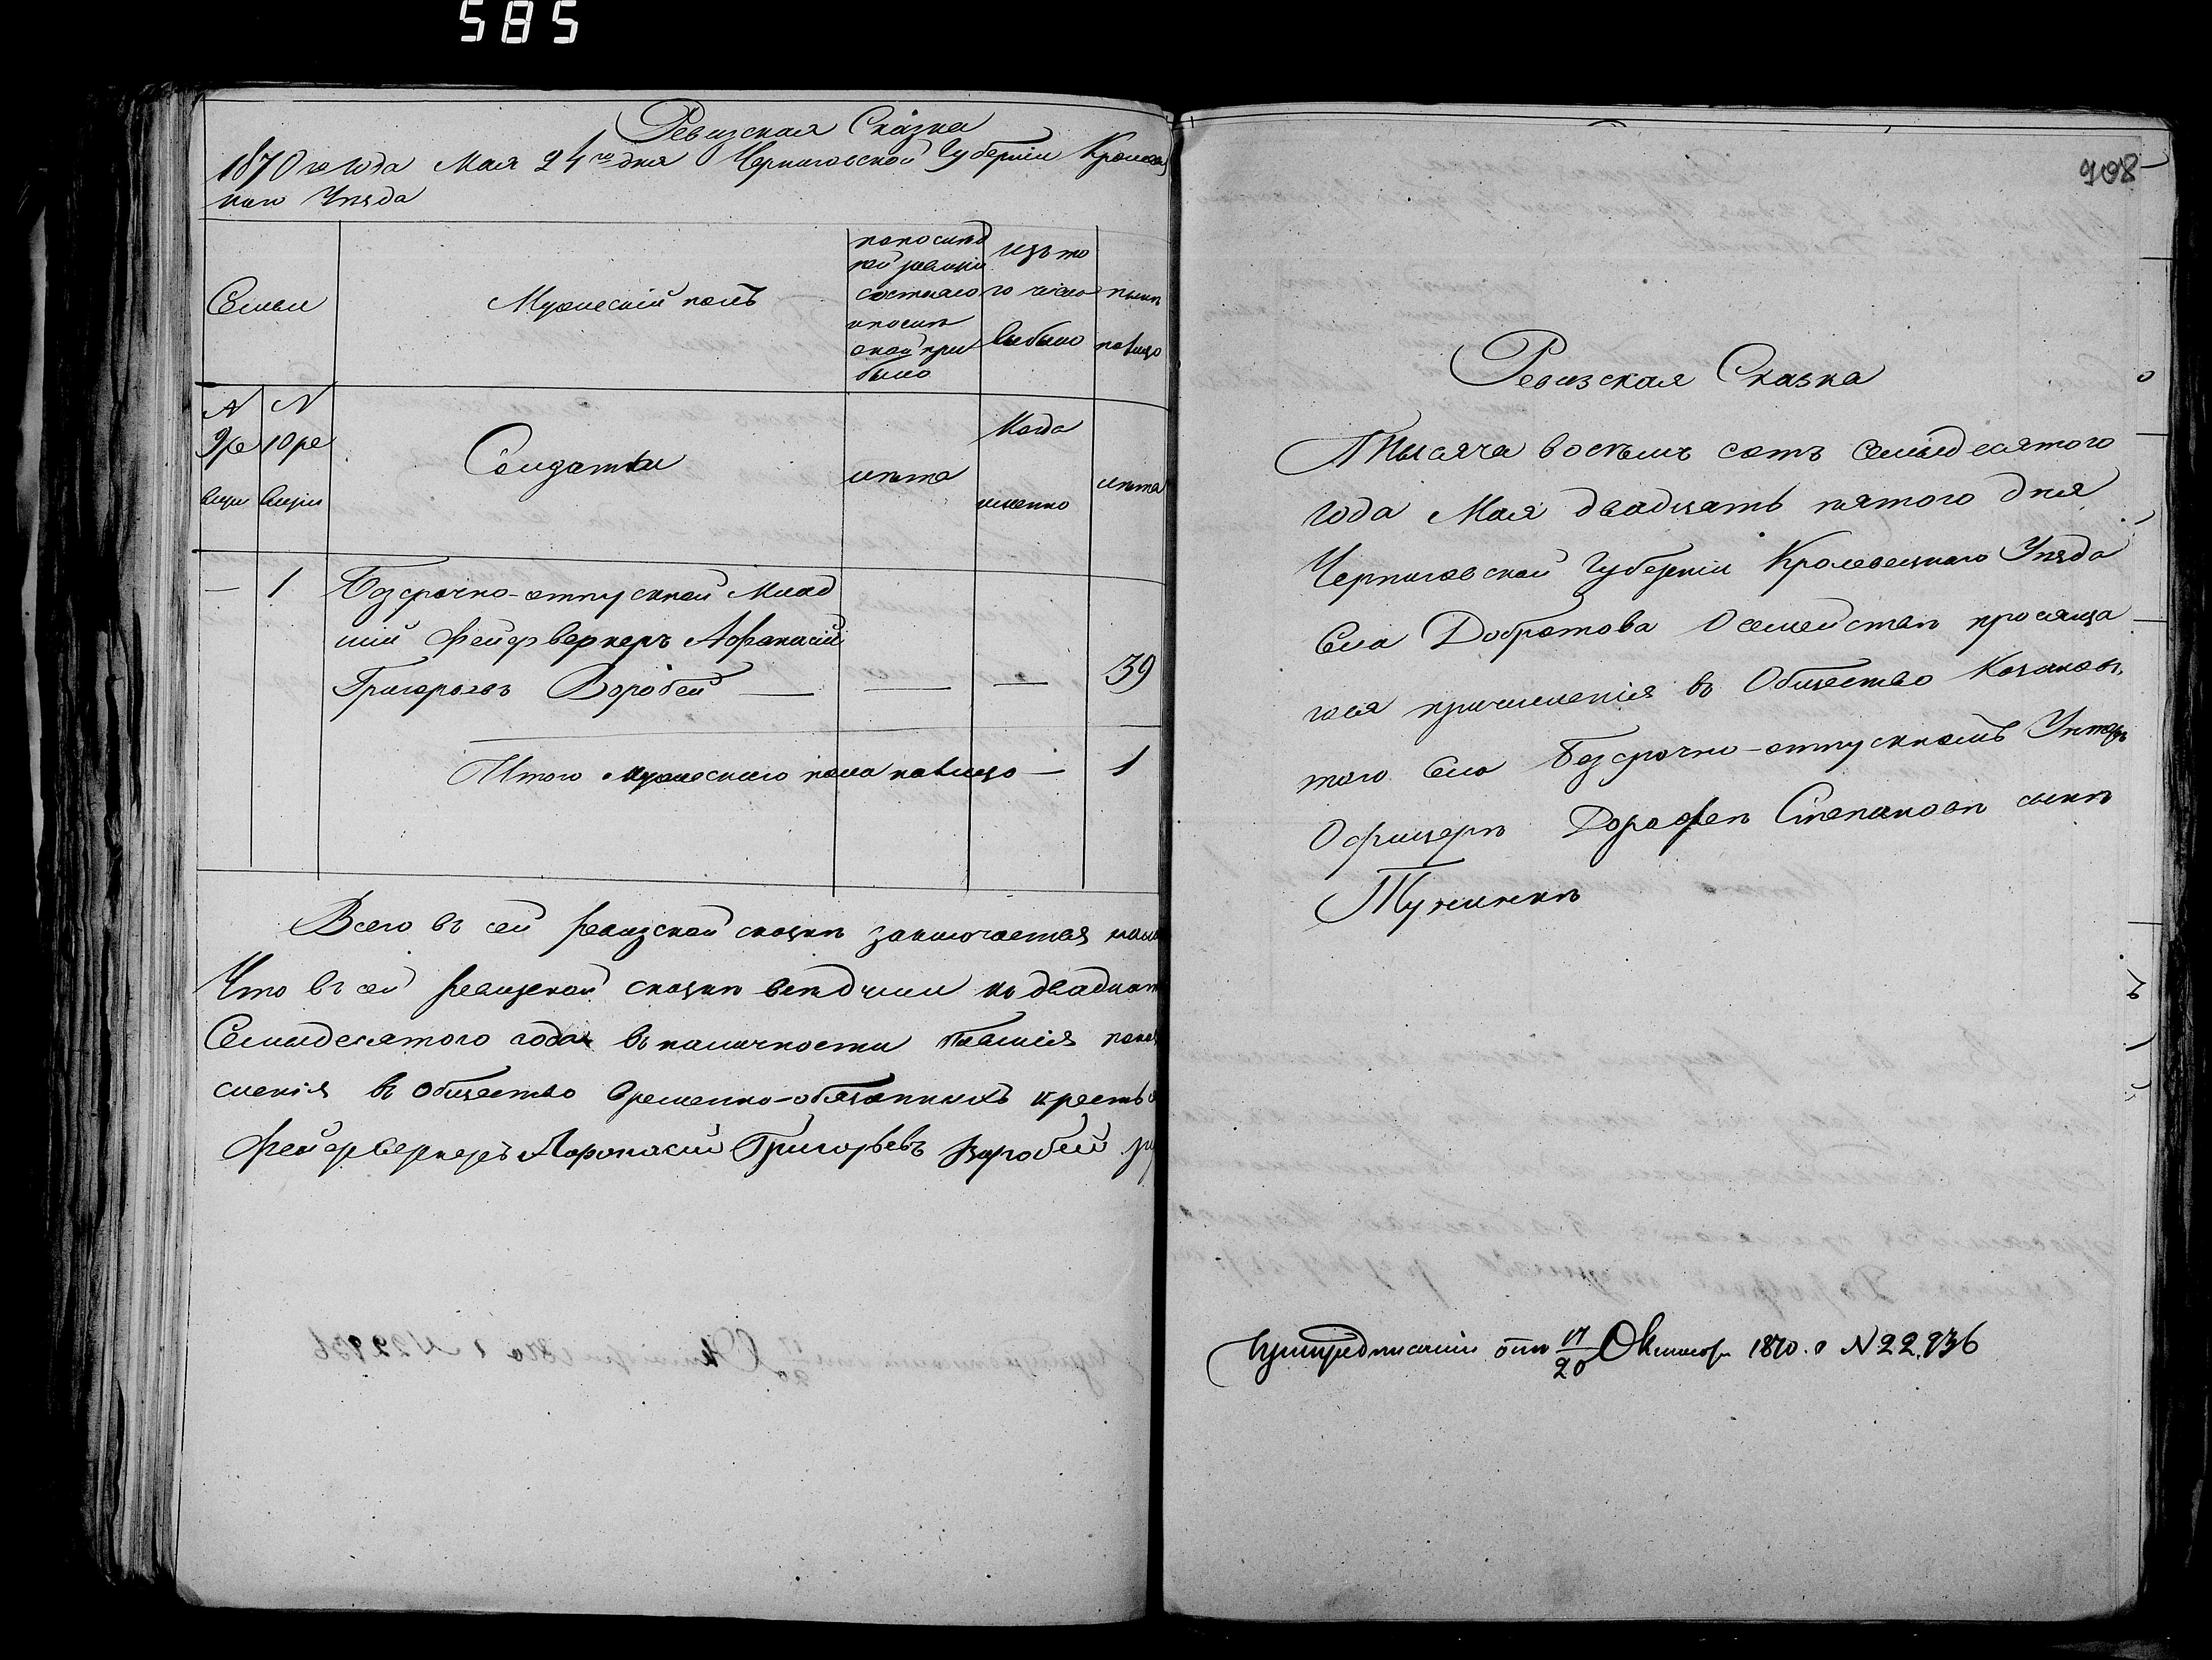 585
Ревизская Сказка
1870 го года Мая 24 го дня Черниговской Губерніи Кролеве
каго Уѣзда
Семьи
Мужескій полъ
по послѣд
ней ревизіи
состояло
и послѣ
оной при
было
изъ то
го числа
выбыло
нынѣ
налицо
N
9 ре
визіи
N
10 ре
визіи
Солдатъи
лѣта
Когда
именно
лѣта
— 1 Безсрочно-отпускной Млад
шій Фейерверкеръ Афанасій
Григорьевъ Воробей — — — 39
Итого мужескаго пола налицо — 1
Всего въ сей ревизской сказкѣ заключается
Что въ сей ревизской сказкѣ всѣ души по двадцат
Семидесятого года въ наличности
сленія въ Общество Временно-обязанныхъ кресть
Фейерверкеръ Афонасій Григорьевъ Воробей
908
Ревизская Сказка
Тысяча восемь сотъ семьдесятого
года Мая двадцать пятого дня
Черниговской Губерніи Кролевецкаго Уѣзда
Села Добротова О семействѣ просяща
гося причисленія въ Общество Козаковъ
того села Безсрочно-отпускномъ Унтеръ
Офицерѣ Дорофеѣ Степановѣ сынѣ
от 17/20 Октября 1870. г N 22.936